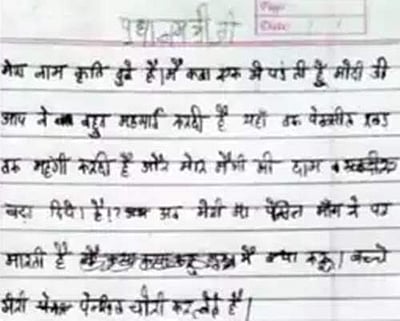 Page
Date
प्रधानमंत्री जी
मेरा नाम कृति दुबे है। मैं कक्षा एक में पढ़ती हूँ मोदी जी
आप ने बहुत महगाई करदी है यहाँ तक पेन्सील रबड़
तक महंगी करदी है और मेरि मैगी की दाम
बढ़ा दिये। है।? अब मेरी मा पेंसिल माँगने पर
मारती है मैं क्या करू। बच्चे
मेरी पेन्सिल चोरी कर लेते है।